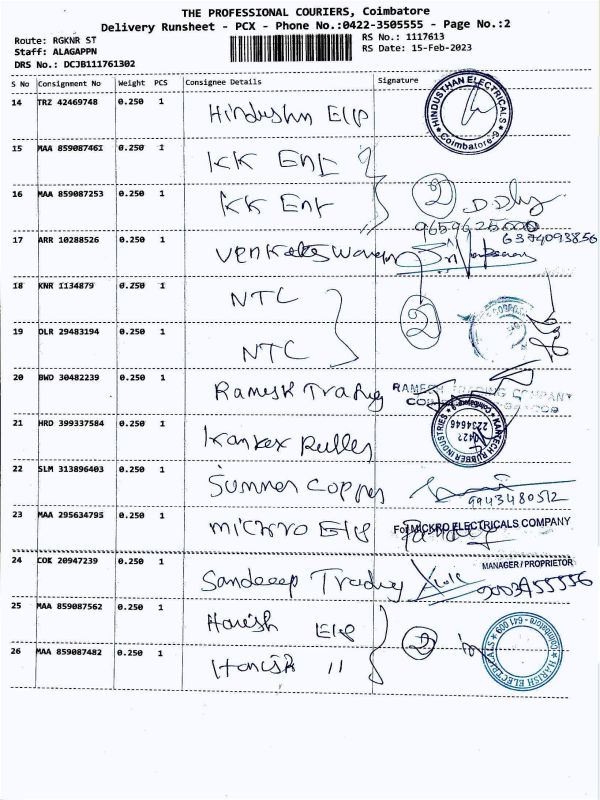 THE PROFESSIONAL COURIERS, Coimbatore
Delivery Runsheet - PCX - Phone No.:0422-3505555 - Page No.:2
Route: RGKNR ST
RS No.: 1117613
Staff: ALAGAPPN
RS Date: 15-Feb-2023
DRS No.: DCJB111761302
S No Consignment No Weight PCS Consignee Details Signature
14 TRZ 42469748 0.250 1 Hindusthn Elp HINDUSTHAN ELECTRICALS Coimbatore-9
15 MAA 859087461 0.250 1 KK Ent
16 MAA 859087253 0.250 1 KK Ent 2
9659625000
17 ARR 10288526 0.250 1 Venkateswaran 6374093856
18 KNR 1134879 0.250 1 NTC 2
19 DLR 29483194 0.250 1 NTC
20 BWD 30482239 0.250 1 Ramesh Trading RAMESH TRADING COMPANY
21 HRD 399337584 0.250 1 RUBBER INDUSTRIES Coimbatore 0422 2234646
22 SLM 313896403 0.250 1 Summer Copper 9943480512
23 MAA 295634795 0.250 1 Mickro Elp For MICKRO ELECTRICALS COMPANY
MANAGER / PROPRIETOR
24 COK 20947239 0.250 1 Sandeep Trading
25 MAA 859087562 0.250 1 Harish Elp 2 HARISH ELECTRICALS Coimbatore - 641 009
26 MAA 859087482 0.250 1 Harish "